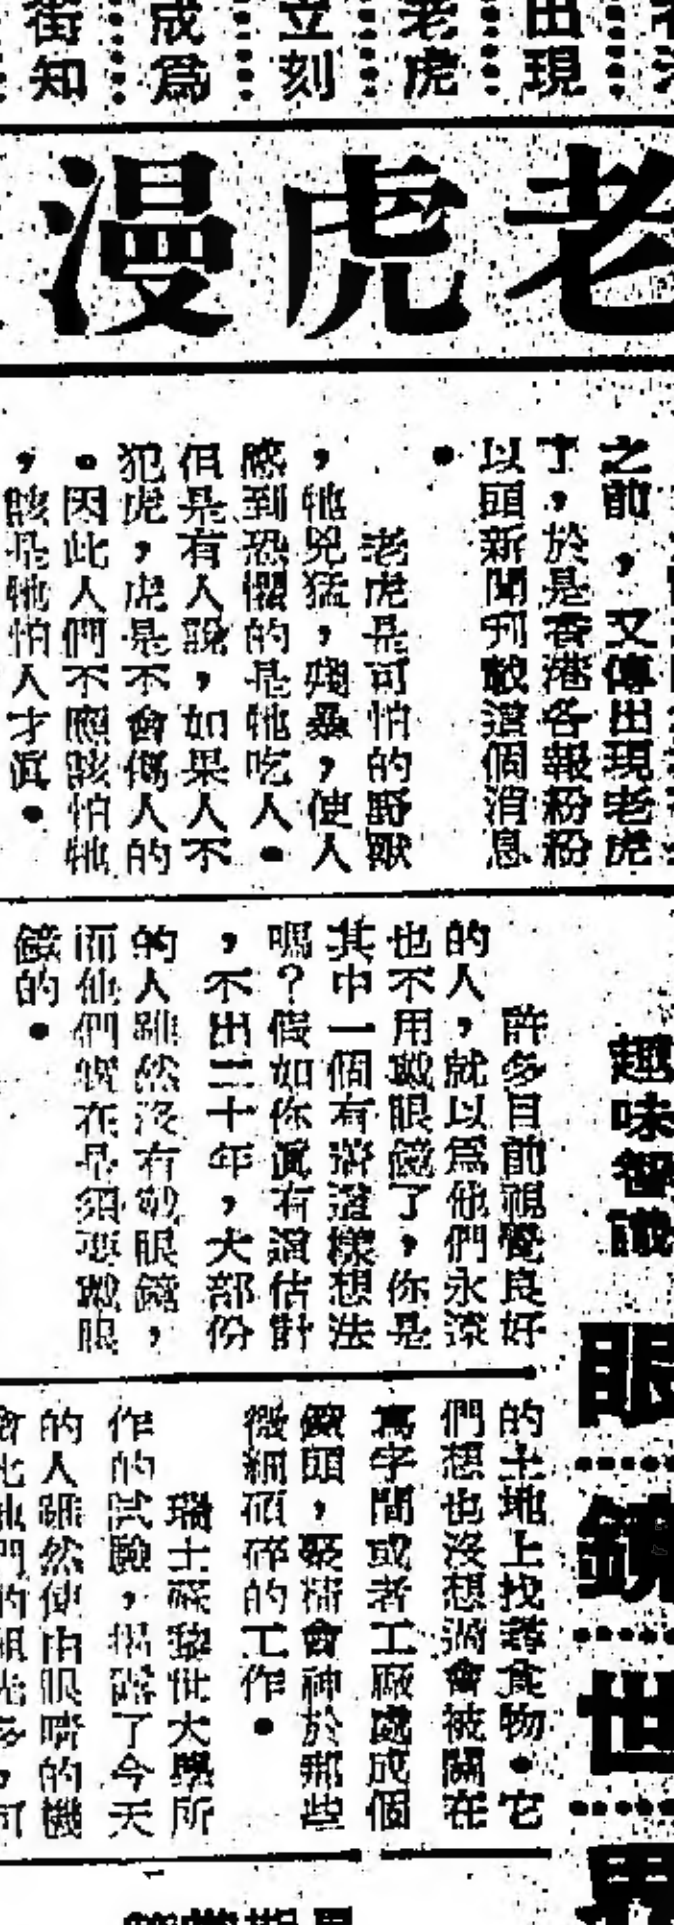 出現
老虎
立刻
成為
街知
老虎漫
之前，又傳出現老虎
了，於是香港各報紛紛
以頭新聞刊載這個消息
。
老虎是可怕的野獸
，牠兇猛，殘暴，使人
感到恐懼的是牠吃人。
但是有人說，如果人不
犯虎，虎是不會傷人的
。因此人們不應該怕牠
，該是牠怕人才真。
趣味智識
眼鏡世界
許多目前視覺良好
的人，就以為他們永遠
也不用戴眼鏡了，你是
其中一個有著這樣想法
嗎？假如你真有這估計
，不出二十年，大部份
的人雖然沒有戴眼鏡，
而他們實在是須要戴眼
鏡的。
的土地上找尋食物。它
們想也沒想過會被關在
寫字間或者工廠處成個
鐘頭，聚精會神於那些
微細瑣碎的工作。
瑞士蘇黎世大學所
作的試驗，揭露了今天
的人雖然使由眼睛的機